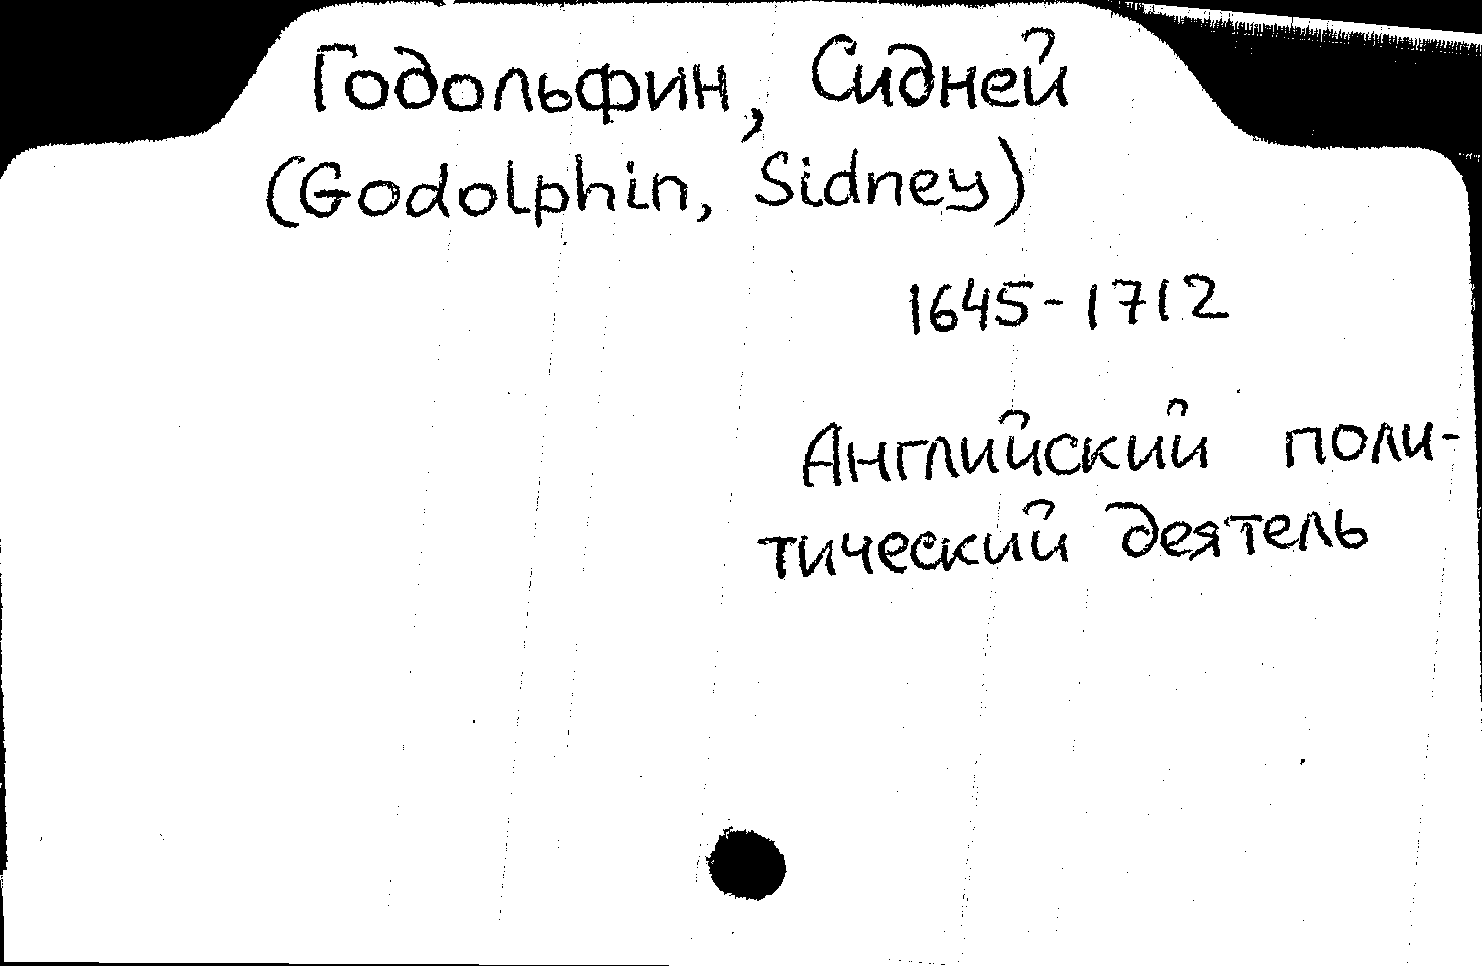 Годольфин, Сидней
(Godolphin, Sidney)
1645-1712
Английский поли-
тический деятель